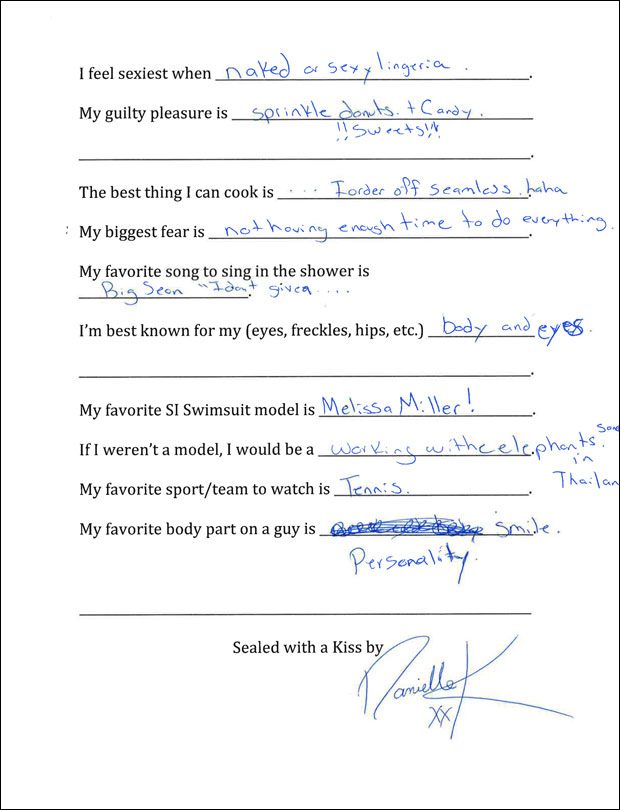 I feel sexiest when naked or sexy lingeria.
My guilty pleasure is sprinkle donuts. + Candy.
!!Sweets!!
The best thing I can cook is .... I order off seamless. haha
My biggest fear is not having enough time to do everything.
My favorite song to sing in the shower is
Big Sean "I dont give a ....
I'm best known for my (eyes, freckles, hips, etc.) body and eyes.
My favorite SI Swimsuit model is Melissa Miller!
If I weren't a model, I would be a working with elephants
in
Thailan
My favorite sport/team to watch is Tennis.
My favorite body part on a guy is smile.
Personality.
Sealed with a Kiss by
Danielle K
XX